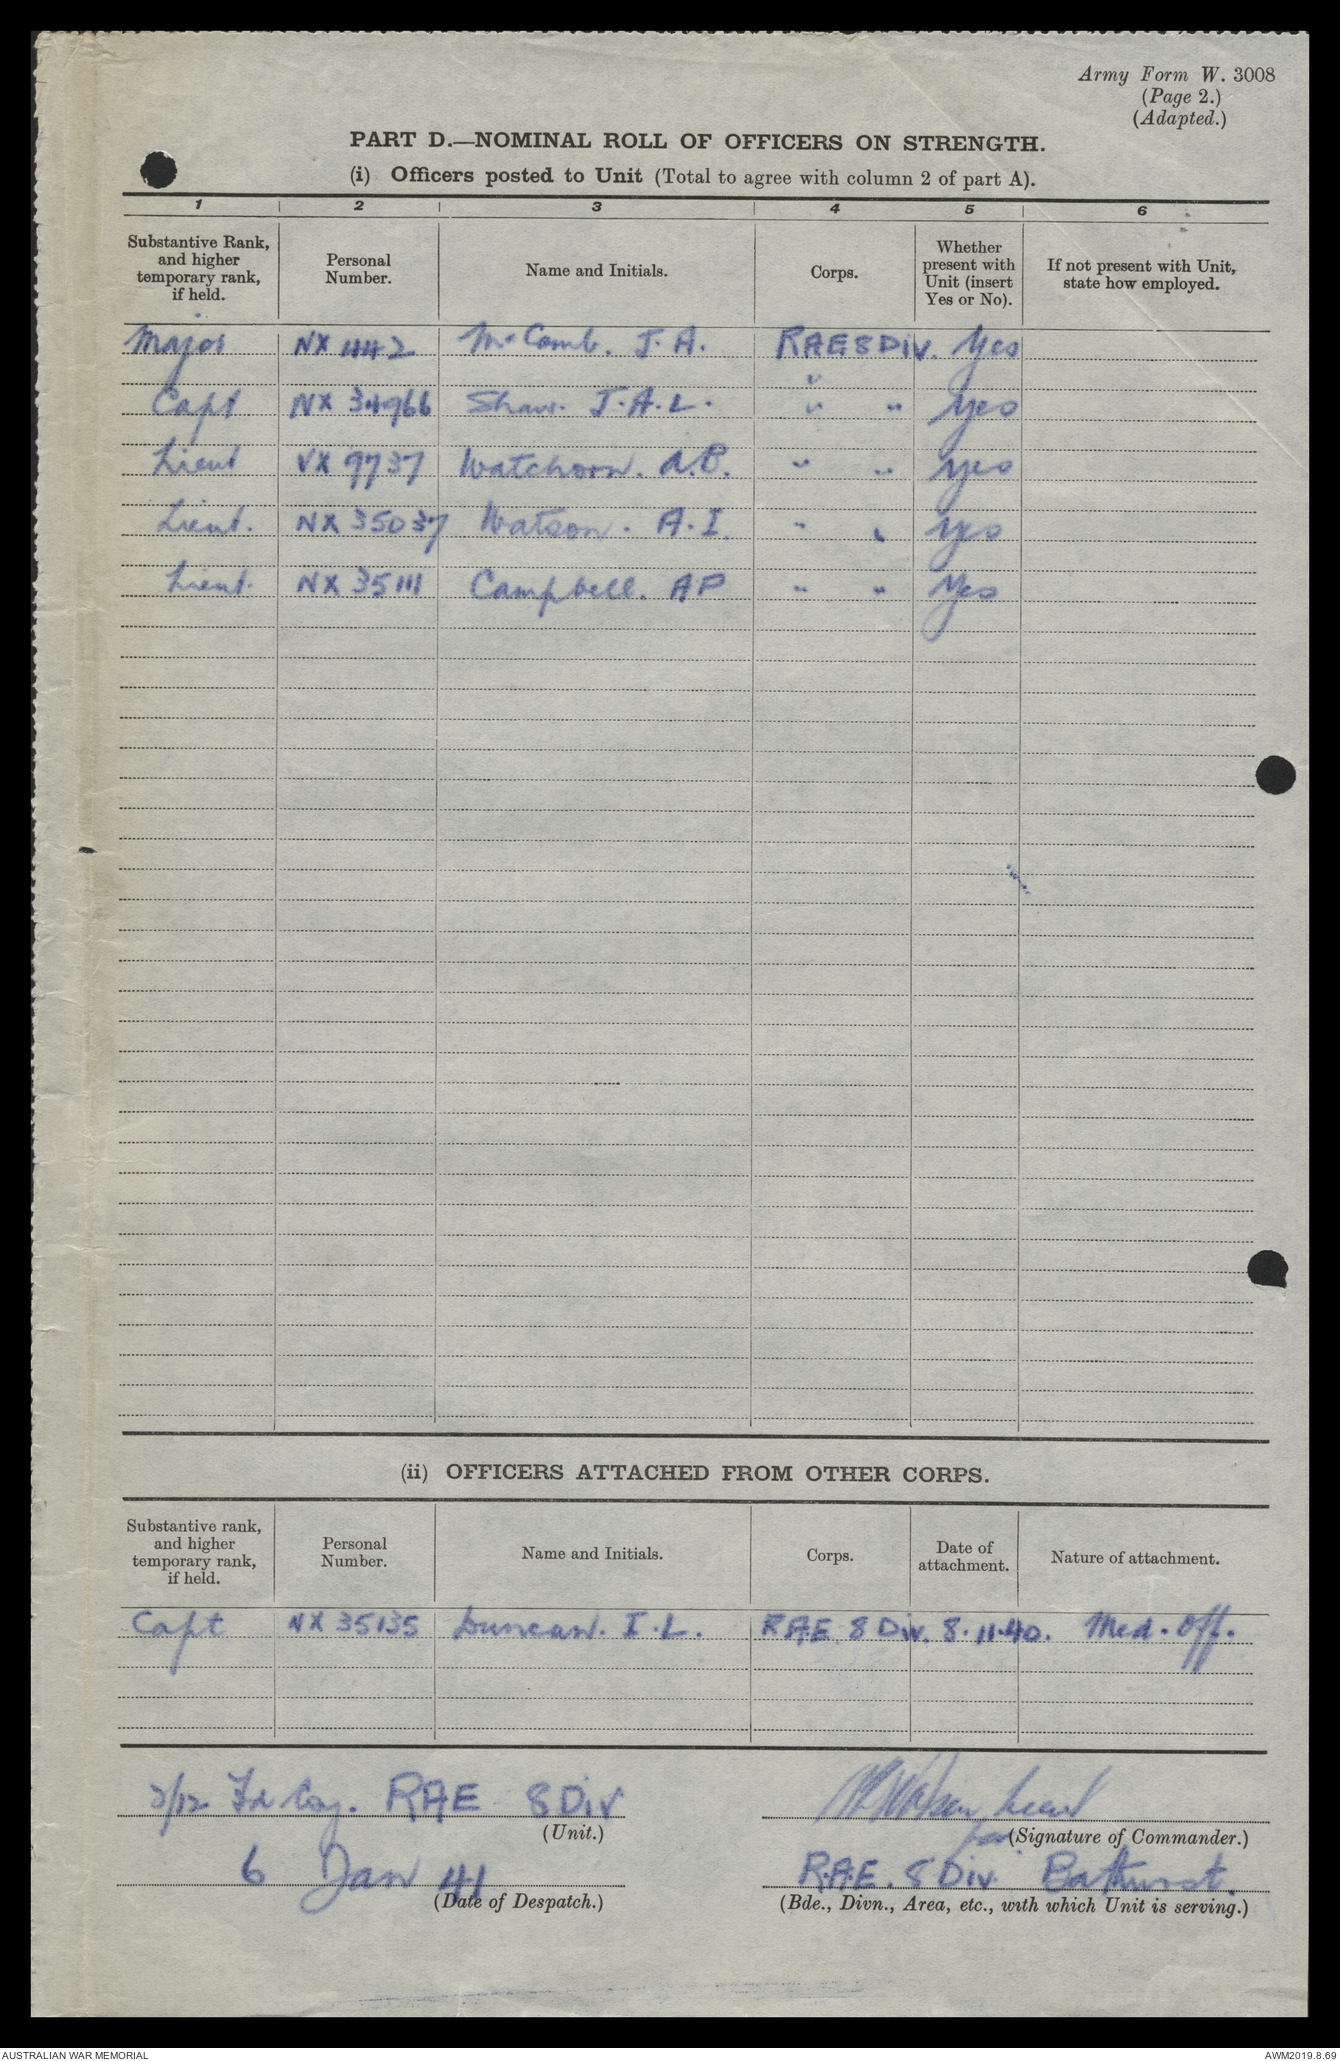 Army Form W. 3008
(Page 2.)
(Adapted.)
PART D.—NOMINAL ROLL OF OFFICERS ON STRENGTH.
(i) Officers posted to Unit (Total to agree with column 2 of part A).
1 2 3 4 5 6
Substantive Rank, and higher temporary rank, if held. Personal Number. Name and Initials. Corps. Whether present with Unit (insert Yes or No). If not present with Unit, state how employed.
Major NX McComb. J.A. RAE 8 DIV. Yes
Capt NX 34966 Shaw. J.A.L. " " Yes
Lieut VX 9737 Watchorn. A.B. " " Yes
Lieut. NX 35037 Watson. A.I. " " Yes
Lieut. NX 35111 Campbell. AP " " Yes
(ii) OFFICERS ATTACHED FROM OTHER CORPS.
Substantive rank, and higher temporary rank, if held. Personal Number. Name and Initials. Corps. Date of attachment. Nature of attachment.
Capt NX 35135 Duncan. I.L. RAE 8 Div. 8.11.40. Med. Off.
2/12 Fd Coy. RAE 8 Div
(Unit.)
Watson Lieut
for (Signature of Commander.)
6 Jan 41
(Date of Despatch.)
R.A.E. 8 Div. Bathurst.
(Bde., Divn., Area, etc., with which Unit is serving.)
AUSTRALIAN WAR MEMORIAL
AWM2019.8.69